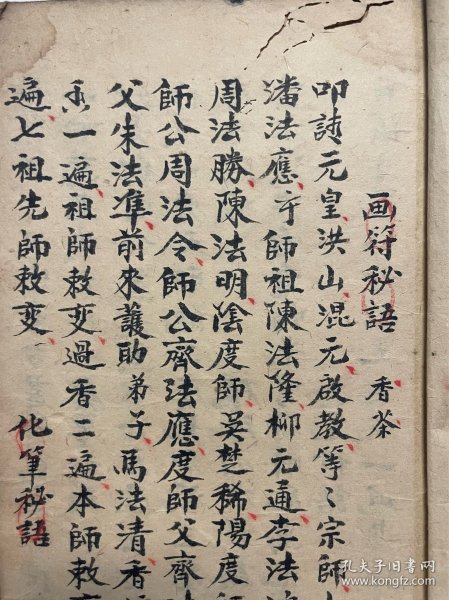 画符秘語 香茶
叩請元皇洪山混元啟教等〻宗師
潘法應于師祖陳法隆柳元通李法
周法勝陳法明陰度師吳楚稀陽度
師公周法令師公齊法應度師父齊
父朱法準前來護助弟子馬法清香
香一遍祖師敕变過香二遍本師敕
遍七祖先師敕变 化筆秘語
孔夫子旧书网
book.kongfz.com